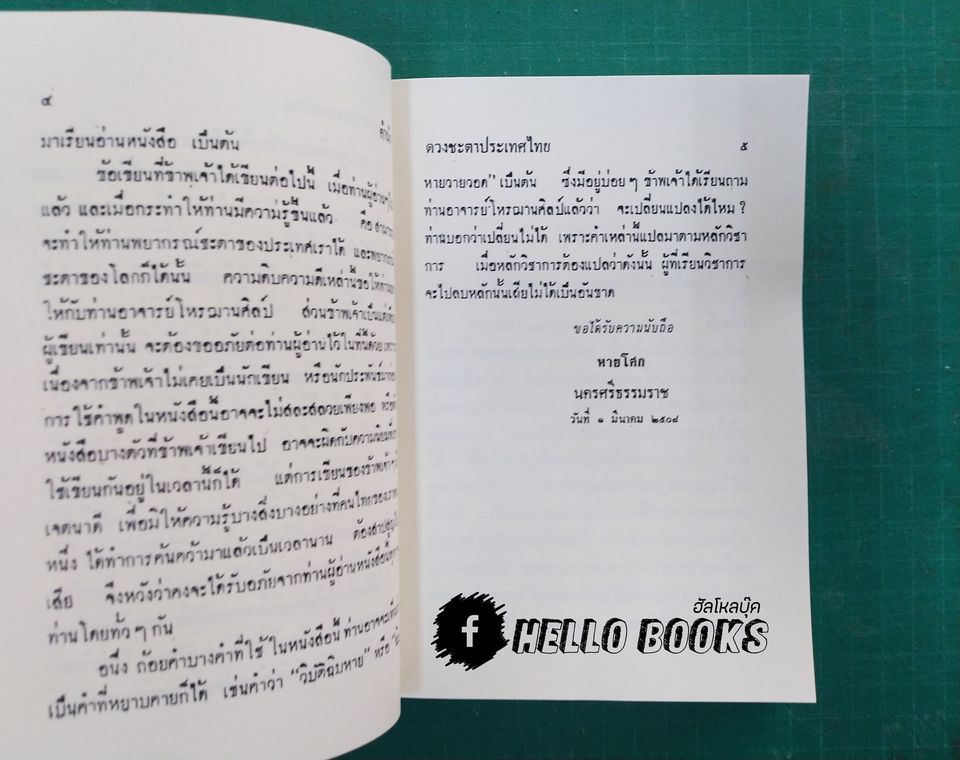 ๔
มาเรียนอ่านหนังสือ เป็นต้น
ข้อเขียนที่ข้าพเจ้าได้เขียนต่อไปนี้ เมื่อท่านผู้อ่าน
แล้ว และเมื่อกระทำให้ท่านมีความรู้ขึ้นแล้ว คือ
จะทำให้ท่านพยากรณ์ชะตาของประเทศเราได้
ชะตาของโลกก็ได้นั้น ความดิบความดีเหล่านี้ขอให้
ให้กับท่านอาจารย์โหรฌานศิลป์ ส่วนข้าพเจ้าเป็นแต่เพียง
ผู้เขียนเท่านั้น จะต้องขออภัยต่อท่านผู้อ่านไว้ในที่นี้ด้วย
เนื่องจากข้าพเจ้าไม่เคยเป็นนักเขียน หรือนักประพันธ์มาก่อน
การใช้คำพูดในหนังสือนี้อาจจะไม่สละสลวยเพียงพอ หรือ
หนังสือบางตัวที่ข้าพเจ้าเขียนไป อาจจะผิดกับความนิยม
ใช้เขียนกันอยู่ในเวลานี้ก็ได้ แต่การเขียนของข้าพเจ้า
เจตนาดี เพื่อมิให้ความรู้บางสิ่งบางอย่างที่คนไทย
หนึ่ง ได้ทำการค้นคว้ามาแล้วเป็นเวลานาน ต้องสาปสูญ
เสีย จึงหวังว่าคงจะได้รับอภัยจากท่านผู้อ่านหนังสือนี้
ท่านโดยทั่ว ๆ กัน
อนึ่ง ถ้อยคำบางคำที่ใช้ในหนังสือนี้ ท่านอาจจะ
เป็นคำที่หยาบคายก็ได้ เช่นคำว่า "วิบัติฉิบหาย" หรือ
ดวงชะตาประเทศไทย ๕
หายวายวอด" เป็นต้น ซึ่งมีอยู่บ่อย ๆ ข้าพเจ้าได้เรียนถาม
ท่านอาจารย์โหรฌานศิลป์แล้วว่า จะเปลี่ยนแปลงได้ไหม ?
ท่านบอกว่าเปลี่ยนไม่ได้ เพราะคำเหล่านี้แปลมาตามหลักวิชา
การ เมื่อหลักวิชาการต้องแปลว่าดังนั้น ผู้ที่เรียนวิชาการ
จะไปลบหลักนั้นเสียไม่ได้เป็นอันขาด
ขอได้รับความนับถือ
หายโศก
นครศรีธรรมราช
วันที่ ๑ มีนาคม ๒๕๐๘
ฮัลโหลบุ๊ค
f HELLO BOOKS